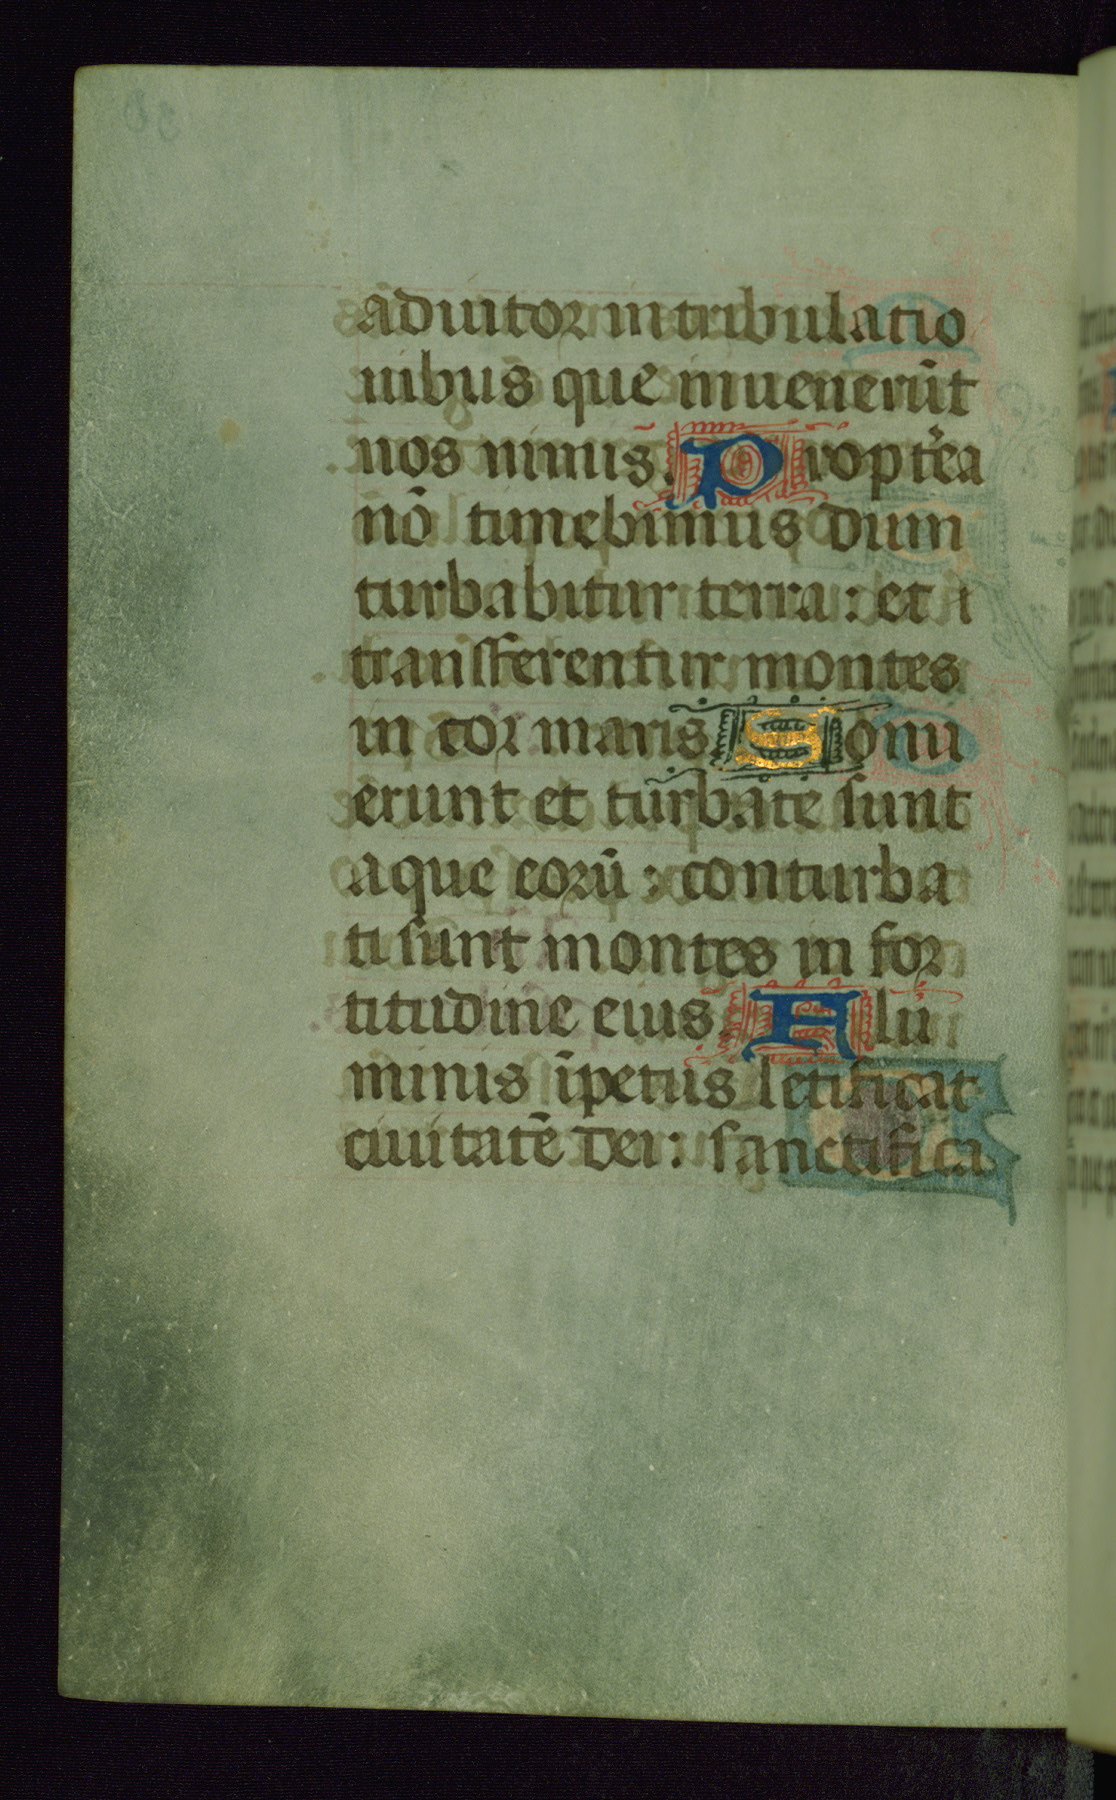 adiutor in tribulatio
nibus que inuenerūt
nos nimis. Propt̄ea
nō timebimus dum
turbabitur terra: et
transferentur montes
in cor maris. Sonu
erunt et turbate sunt
aque eorū: conturba
ti sunt montes in for
titudine eius. Flu
minis īpetus letificat
ciuitatē dei: sanctifica